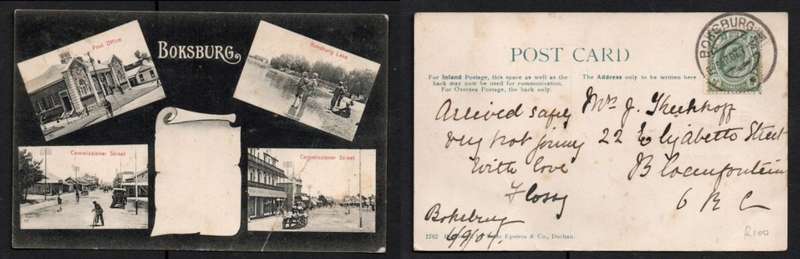 Post Office
BOKSBURG
Boksburg Lake
Commissioner Street
Commissioner Street
BOKSBURG
POST CARD
For Inland Postage, this space as well as the
back may now be used for communication.
For Oversea Postage, the back only.
The Address only to be written here
Arrived safely
very hot
With love
Flossy
Boksburg
6/9/07.
Mrs J.
22 Elizabeth Street
Bloemfontein
O R C
1762
Epstein & Co., Durban.
R100